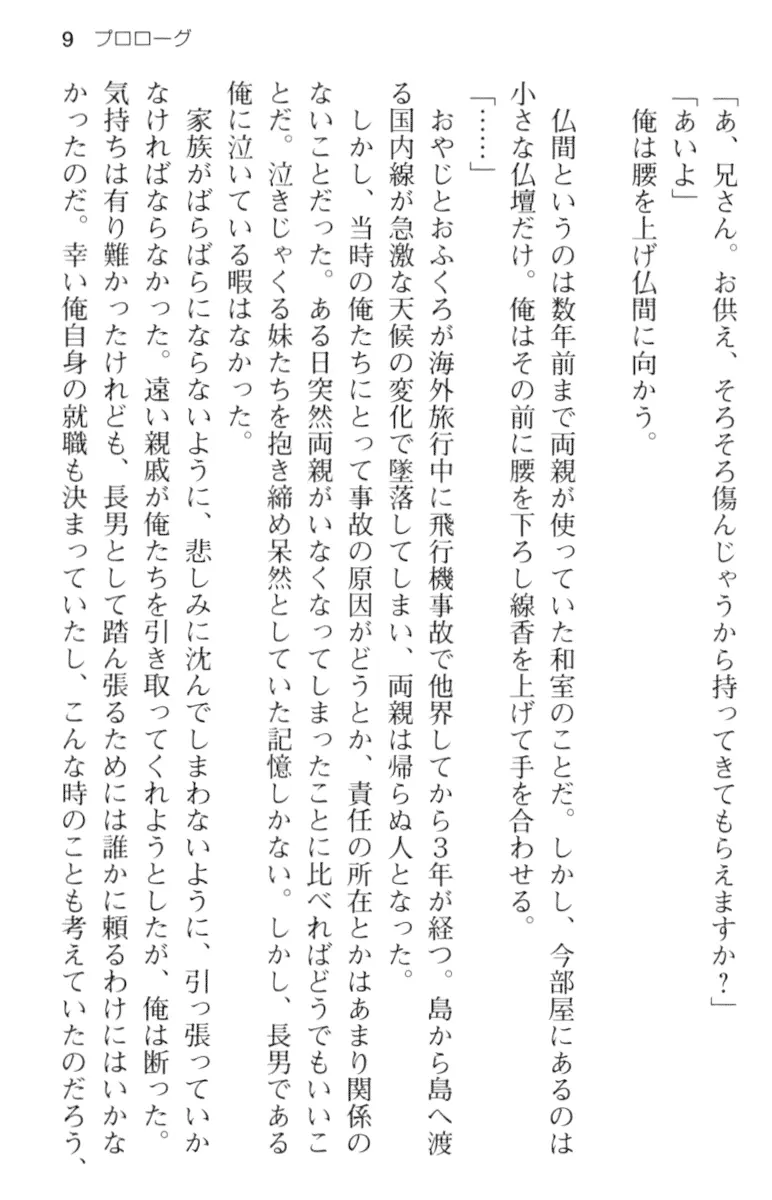 9 プロローグ
「あ、兄さん。お供え、そろそろ傷んじゃうから持ってきてもらえますか？」
「あいよ」
俺は腰を上げ仏間に向かう。
仏間というのは数年前まで両親が使っていた和室のことだ。しかし、今部屋にあるのは
小さな仏壇だけ。俺はその前に腰を下ろし線香を上げて手を合わせる。
「……」
おやじとおふくろが海外旅行中に飛行機事故で他界してから３年が経つ。島から島へ渡
る国内線が急激な天候の変化で墜落してしまい、両親は帰らぬ人となった。
しかし、当時の俺たちにとって事故の原因がどうとか、責任の所在とかはあまり関係の
ないことだった。ある日突然両親がいなくなってしまったことに比べればどうでもいいこ
とだ。泣きじゃくる妹たちを抱き締め呆然としていた記憶しかない。しかし、長男である
俺に泣いている暇はなかった。
家族がばらばらにならないように、悲しみに沈んでしまわないように、引っ張っていか
なければならなかった。遠い親戚が俺たちを引き取ってくれようとしたが、俺は断った。
気持ちは有り難かったけれども、長男として踏ん張るためには誰かに頼るわけにはいかな
かったのだ。幸い俺自身の就職も決まっていたし、こんな時のことも考えていたのだろう、